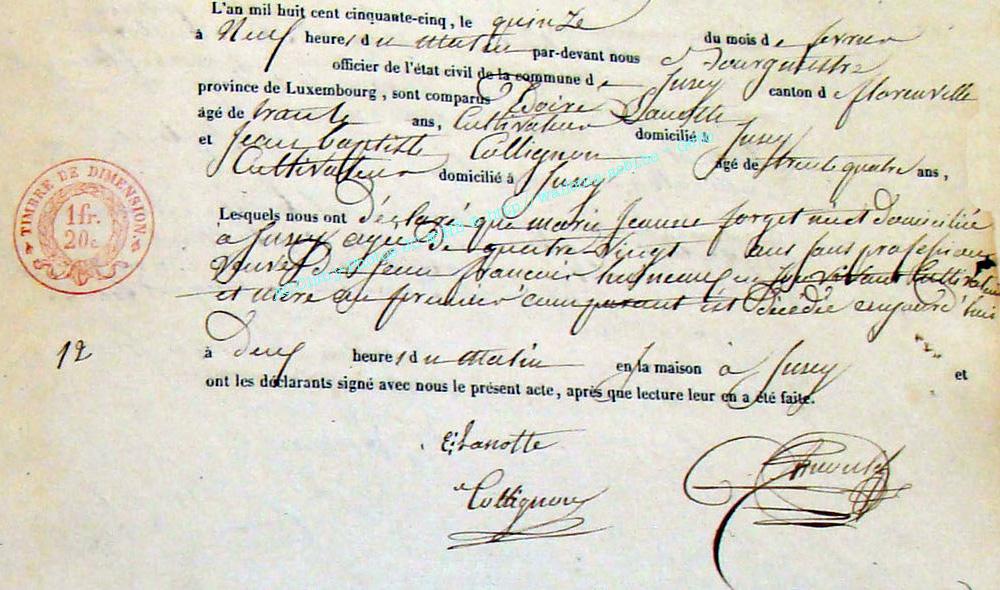 L'an mil huit cent cinquante-cinq, le quinze du mois de fevrier
à Neuf heures du matin par-devant nous Bourgmestre
officier de l'état civil de la commune de Jusey canton de florenville
province de Luxembourg, sont comparus Lanotte
âgé de trente ans, Cultivateur domicilié à Jusey
et Jean baptiste Collignon âgé de trente quatre ans,
Cultivateur domicilié à Jusey
Lesquels nous ont déclaré que marie Jeanne forget domiciliée
à Jusey agée de quatre vingt ans sans profession
Veuve de Jean francois en son vivant Cultivateur
et mère au premier comparant est Décédée aujourd'hui
12
à deux heures du matin en la maison à Jusey et
ont les déclarants signé avec nous le présent acte, après que lecture leur en a été faite.
TIMBRE DE DIMENSION
1 fr.
20 c.
E; Lanotte
Collignon